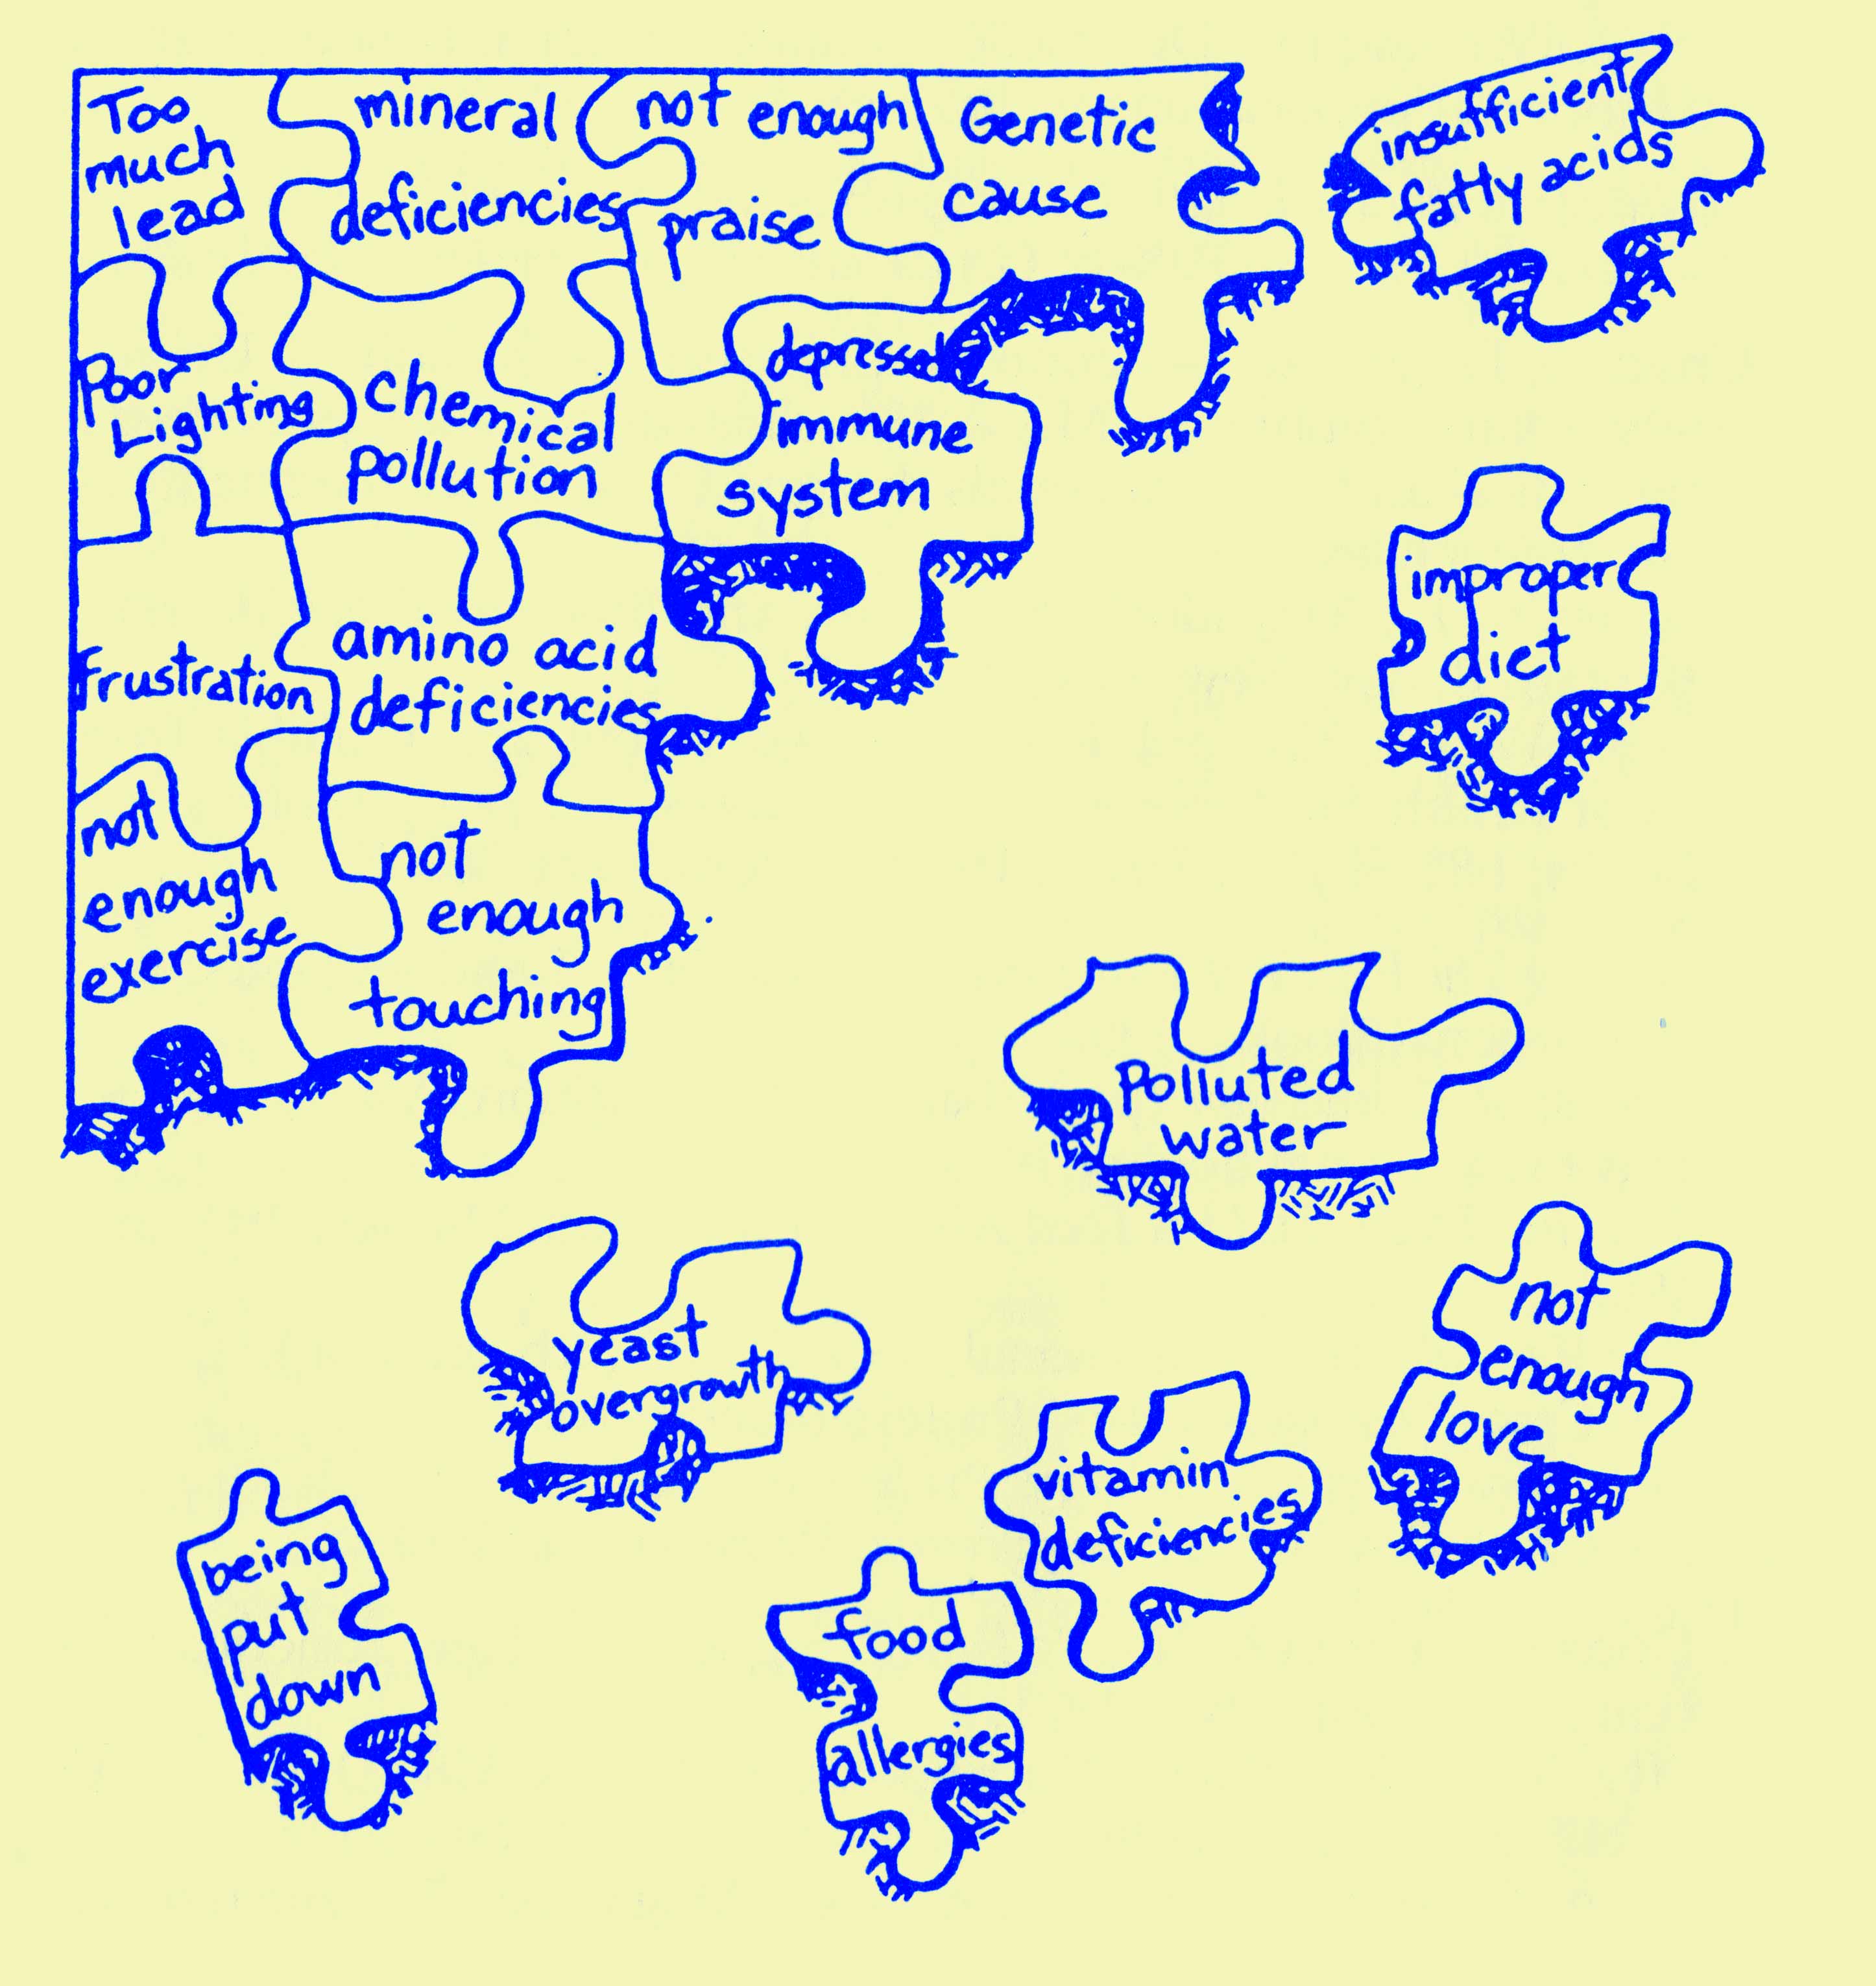 Too
much
lead
mineral
deficiencies
not enough
praise
Genetic
cause
insufficient
fatty acids
Poor
Lighting
chemical
pollution
depressed
immune
system
improper
diet
frustration
amino acid
deficiencies
not
enough
exercise
not
enough
touching
Polluted
water
yeast
overgrowth
not
enough
love
vitamin
deficiencies
being
put
down
food
allergies